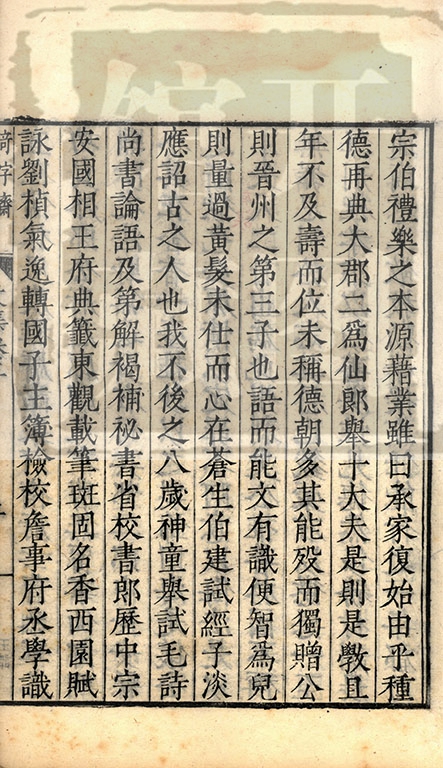 宗伯禮樂之本源藉業雖曰承家復始由乎種
德再典大郡二爲仙郎舉十大夫是則是斆且
年不及壽而位未稱德朝多其能歿而獨贈公
則晉州之第三子也語而能文有識便智爲兒
則量過黃髮未仕而心在蒼生伯建試經子淡
應詔古之人也我不後之八歲神童舉試毛詩
尚書論語及第解褐補秘書省校書郎歷中宗
安國相王府典籤東觀載筆班固名香西園賦
詠劉楨氣逸轉國子主簿檢校詹事府丞學識
奇字齋